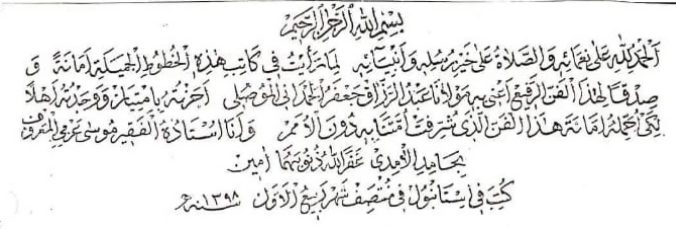 بسم الله الرحمن الرحيم
الحمد لله على نعمائه والصلاة على خير رسله وأنبيائه لما رأيت في كاتب هذه الخطوط الجميلة أمانة و
صدقا لهذا الفن الرفيع أعني به مولانا عبد الرزاق جعفر الحمداني الموصلي أجزته بامتياز ووجدته أهلا
لكي أحمله أمانة هذا الفن الذي شرفت أمتنا به دون الأمم وأنا أستاذه الفقير موسى عزمي المعروف
بحامد الآمدي غفر الله ذنوبهما آمين
كتب في استانبول في منتصف شهر ربيع الأول سنة ١٣٩٨